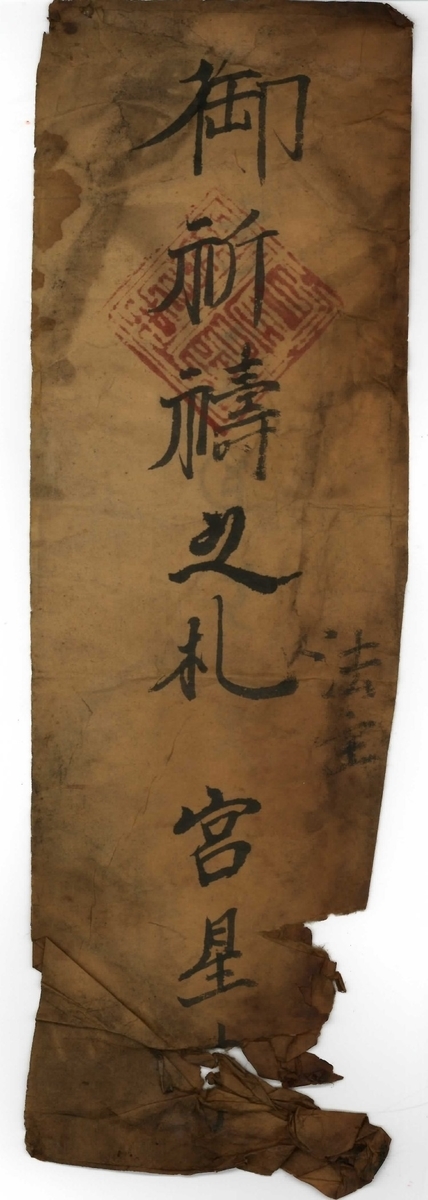 御祈禱之札　宮星
法主